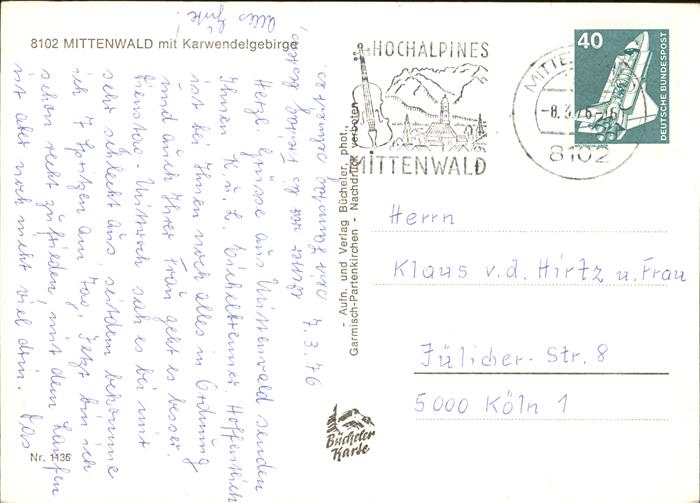 8102 MITTENWALD mit Karwendelgebirge
7.3.76
Herzl. Grüsse aus Mittenwald senden
Ihnen K. u. L. Hoffentlich
ist bei Ihnen noch alles in Ordnung
und auch Ihrer Frau geht es besser.
Dienstag - Mittwoch sah es bei mir
sehr schlecht aus, seitdem bekomme
ich 7 Spritzen am Tag. Jetzt bin ich
schon recht zufrieden, mit dem Laufen
ist aber noch nicht viel drin. Das
Wetter ist bis Freitag
Samstag
Alles Gute!
Nr. 1136
- Aufn. und Verlag Bücheler, phot.,
Garmisch-Partenkirchen - Nachdruck verboten
Bücheler
Karte
HOCHALPINES
MITTENWALD
MITTE
-8.3.76-16
8102
40
DEUTSCHE BUNDESPOST
Herrn
Klaus v.d. Hirtz u. Frau
Jülicher-Str. 8
5000 Köln 1